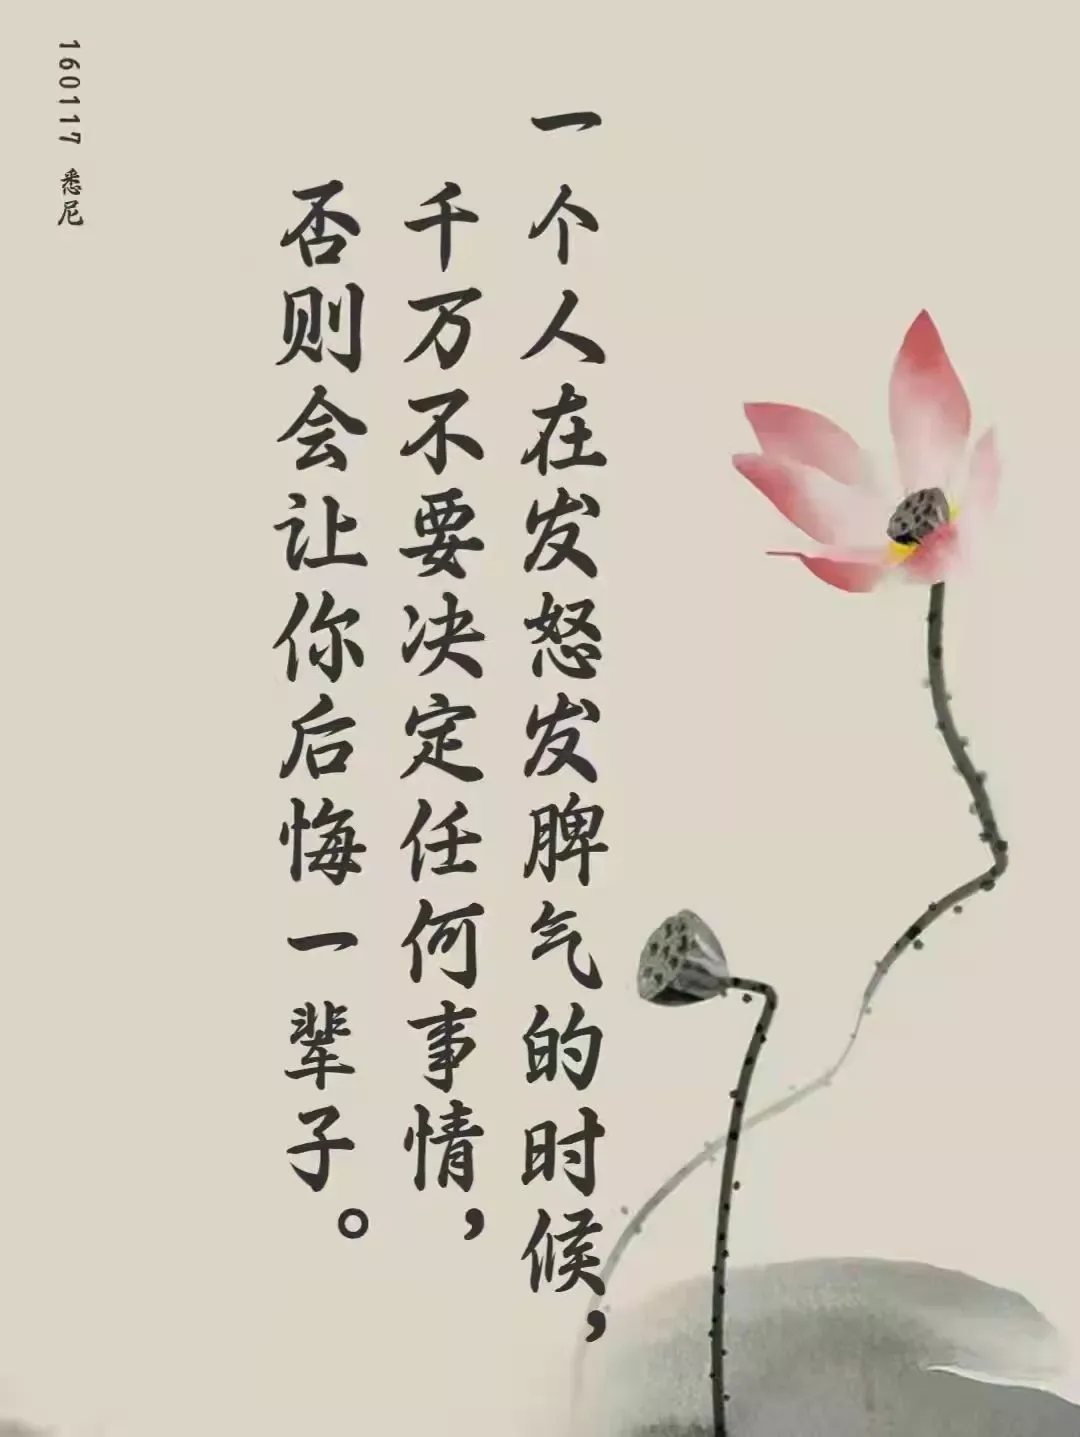 一个人在发怒发脾气的时候，
千万不要决定任何事情，
否则会让你后悔一辈子。
160117 悉尼